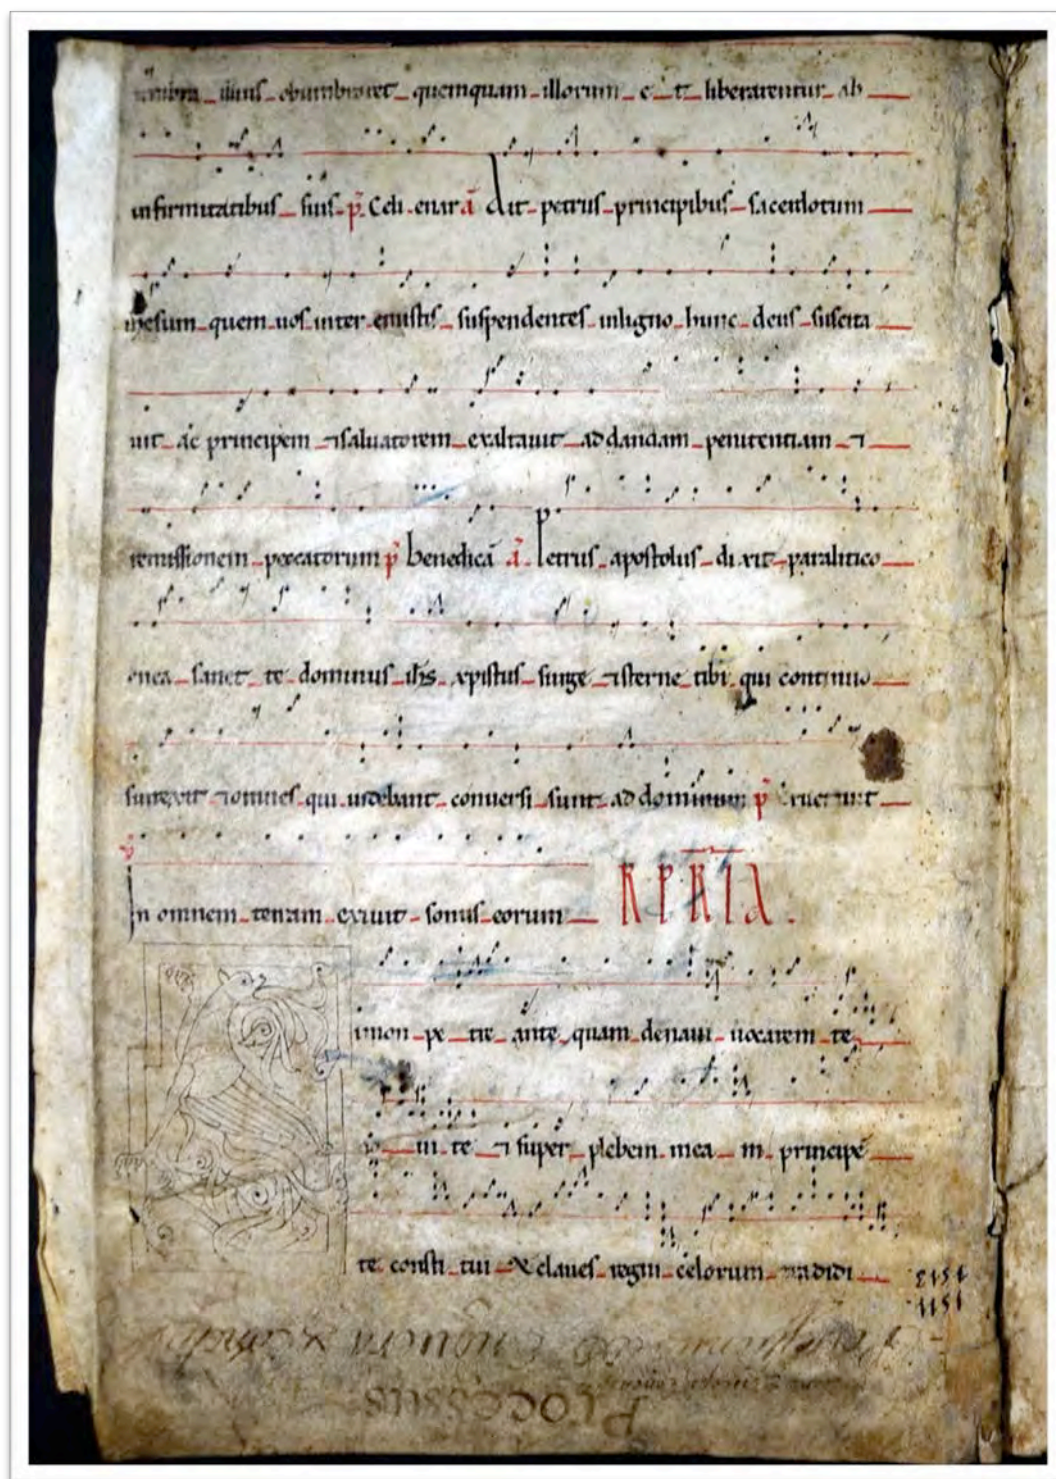 umbra illius obumbraret quemquam illorum et liberarentur ab
infirmitatibus suis p̄ Celi enar ā Ait petrus principibus sacerdotum
ihesum quem uos inter emistis suspendentes inligno hunc deus suscita
uit ac principem ⁊ saluatorem exaltauit ad dandam penitentiam ⁊
remissionem peccatorum p̄ benedicā ā Petrus apostolus dixit paralitico
enea sanet te dominus ihs xpistus surge ⁊ sterne tibi qui continuo
surrexit ⁊ omnes qui uidebant conuersi sunt ad dominum p̄
In omnem terram exiuit sonus eorum
imon petre ante quam denaui uocarem te
ui te ⁊ super plebem mea in principē
te constitui & claues regni celorum tradidi
1513
1511
Processus